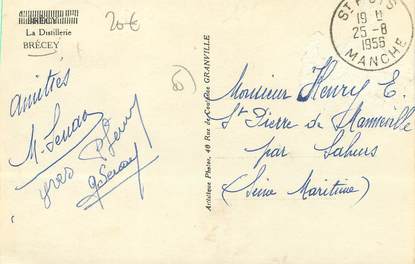 BRÉCY
La Distillerie
BRÉCEY
20€
amitiés
Yves
Artistique Photo, 49 Rue GRANVILLE
ST POIS
19 H
25-8
1956
MANCHE
Monsieur Henry E.
St Pierre de Manneville
par Sahurs
(Seine Maritime)